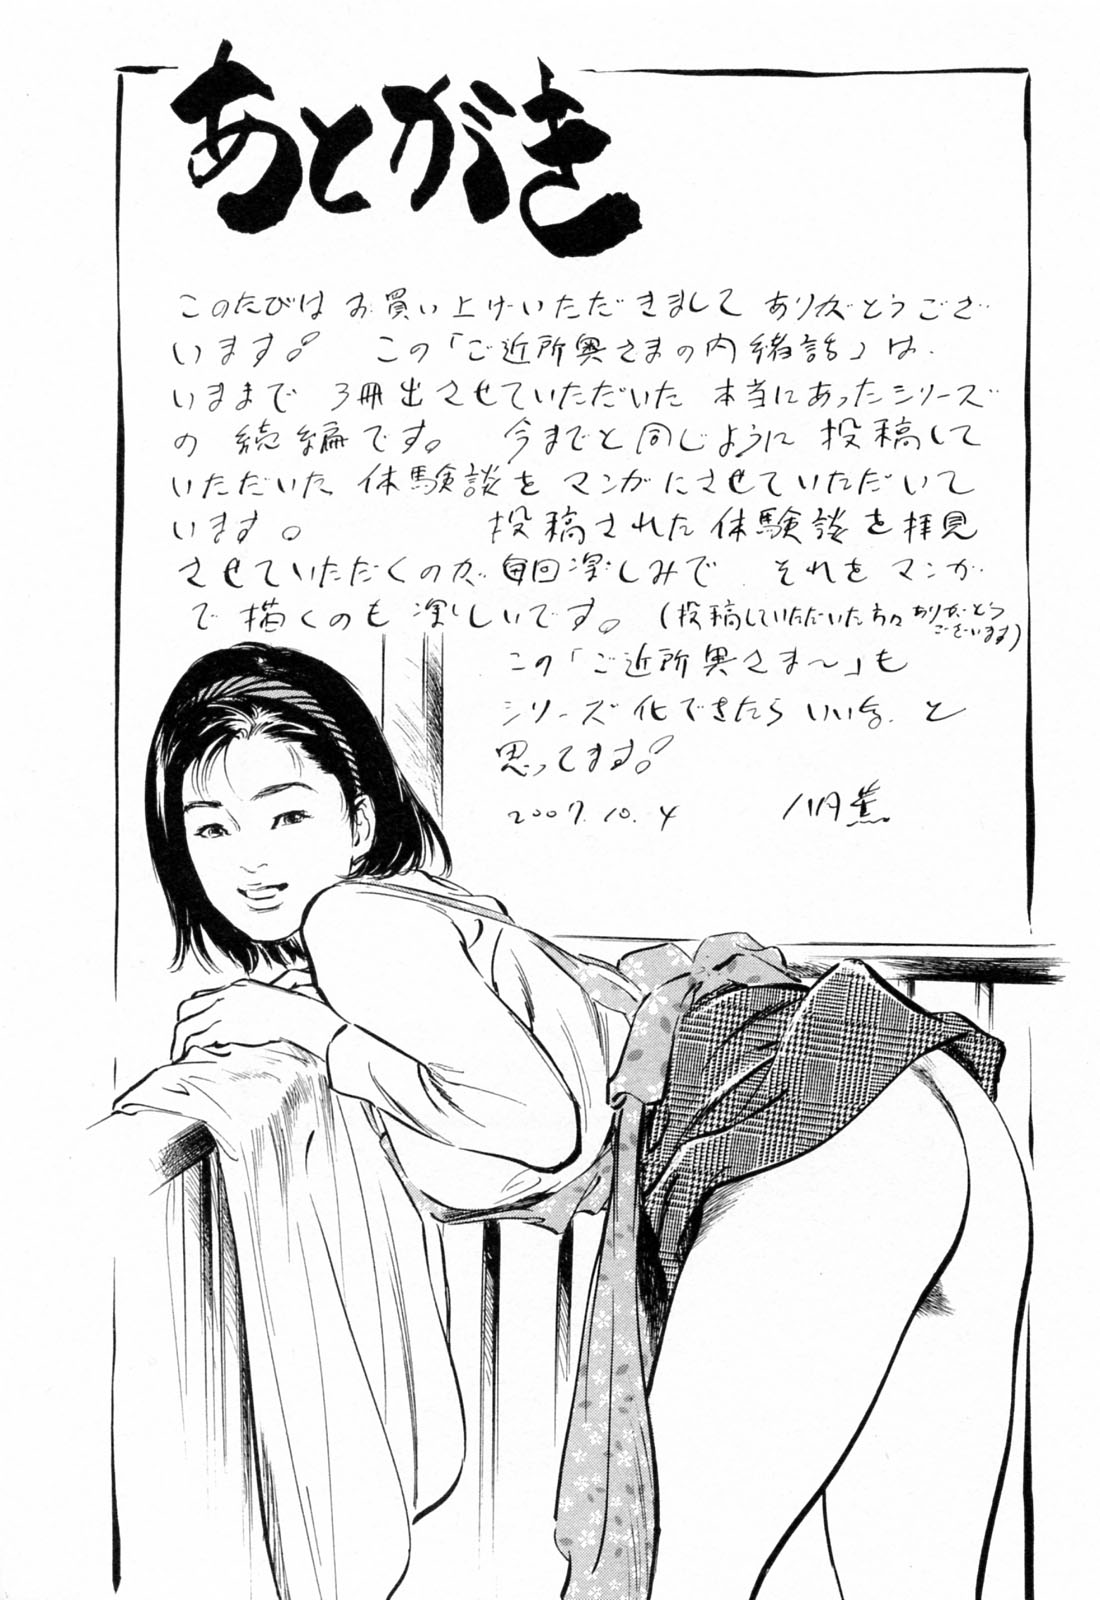 あとがき
このたびは お買い上げいただきまして ありがとうござ
います。 この「ご近所奥さまの内緒話」は、
いままで 3冊出させていただいた 本当にあったシリーズ
の 続編です。 今までと同じように 投稿して
いただいた 体験談を マンガにさせていただいて
います。 投稿された体験談を拝見
させていただくのが、毎回楽しみで、 それを マンガ
で 描くのも 楽しいです。 (投稿していただいた方々 ありがとう
ございます)
この「ご近所奥さま〜」も
シリーズ化できたら いいな、と
思ってます。
2007.10.4 八月薫